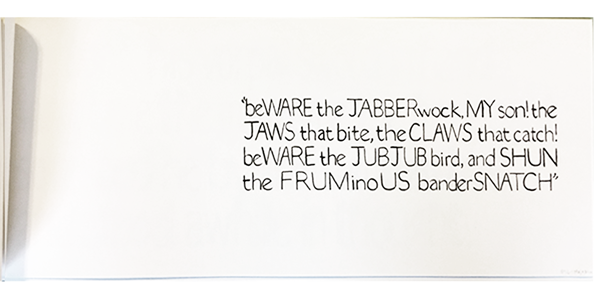 "beWARE the JABBERwock, MY son! the
JAWS that bite, the CLAWS that catch!
beWARE the JUBJUB bird, and SHUN
the FRUMinoUS banderSNATCH"